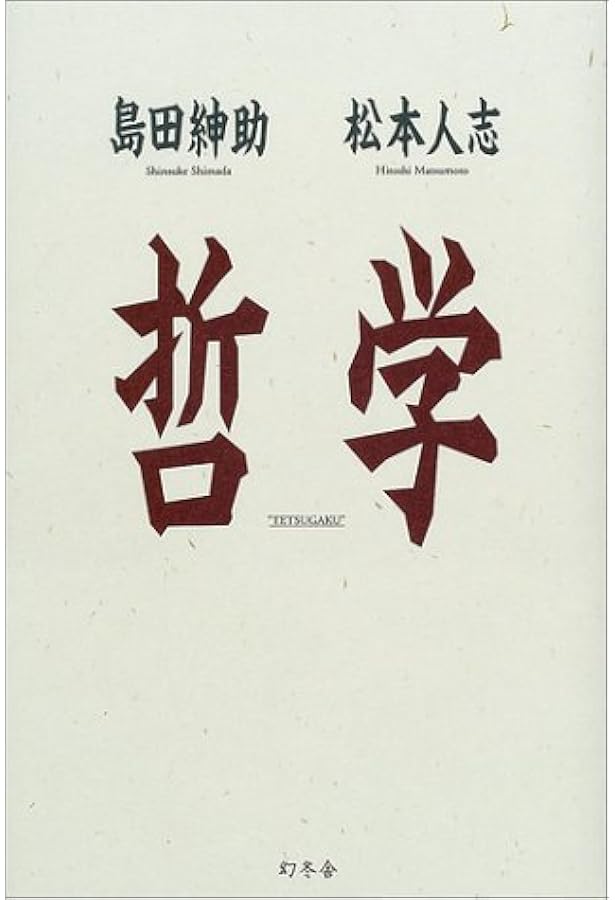 島田紳助 松本人志
Shinsuke Shimada Hitoshi Matsumoto
哲学
"TETSUGAKU"
幻冬舎